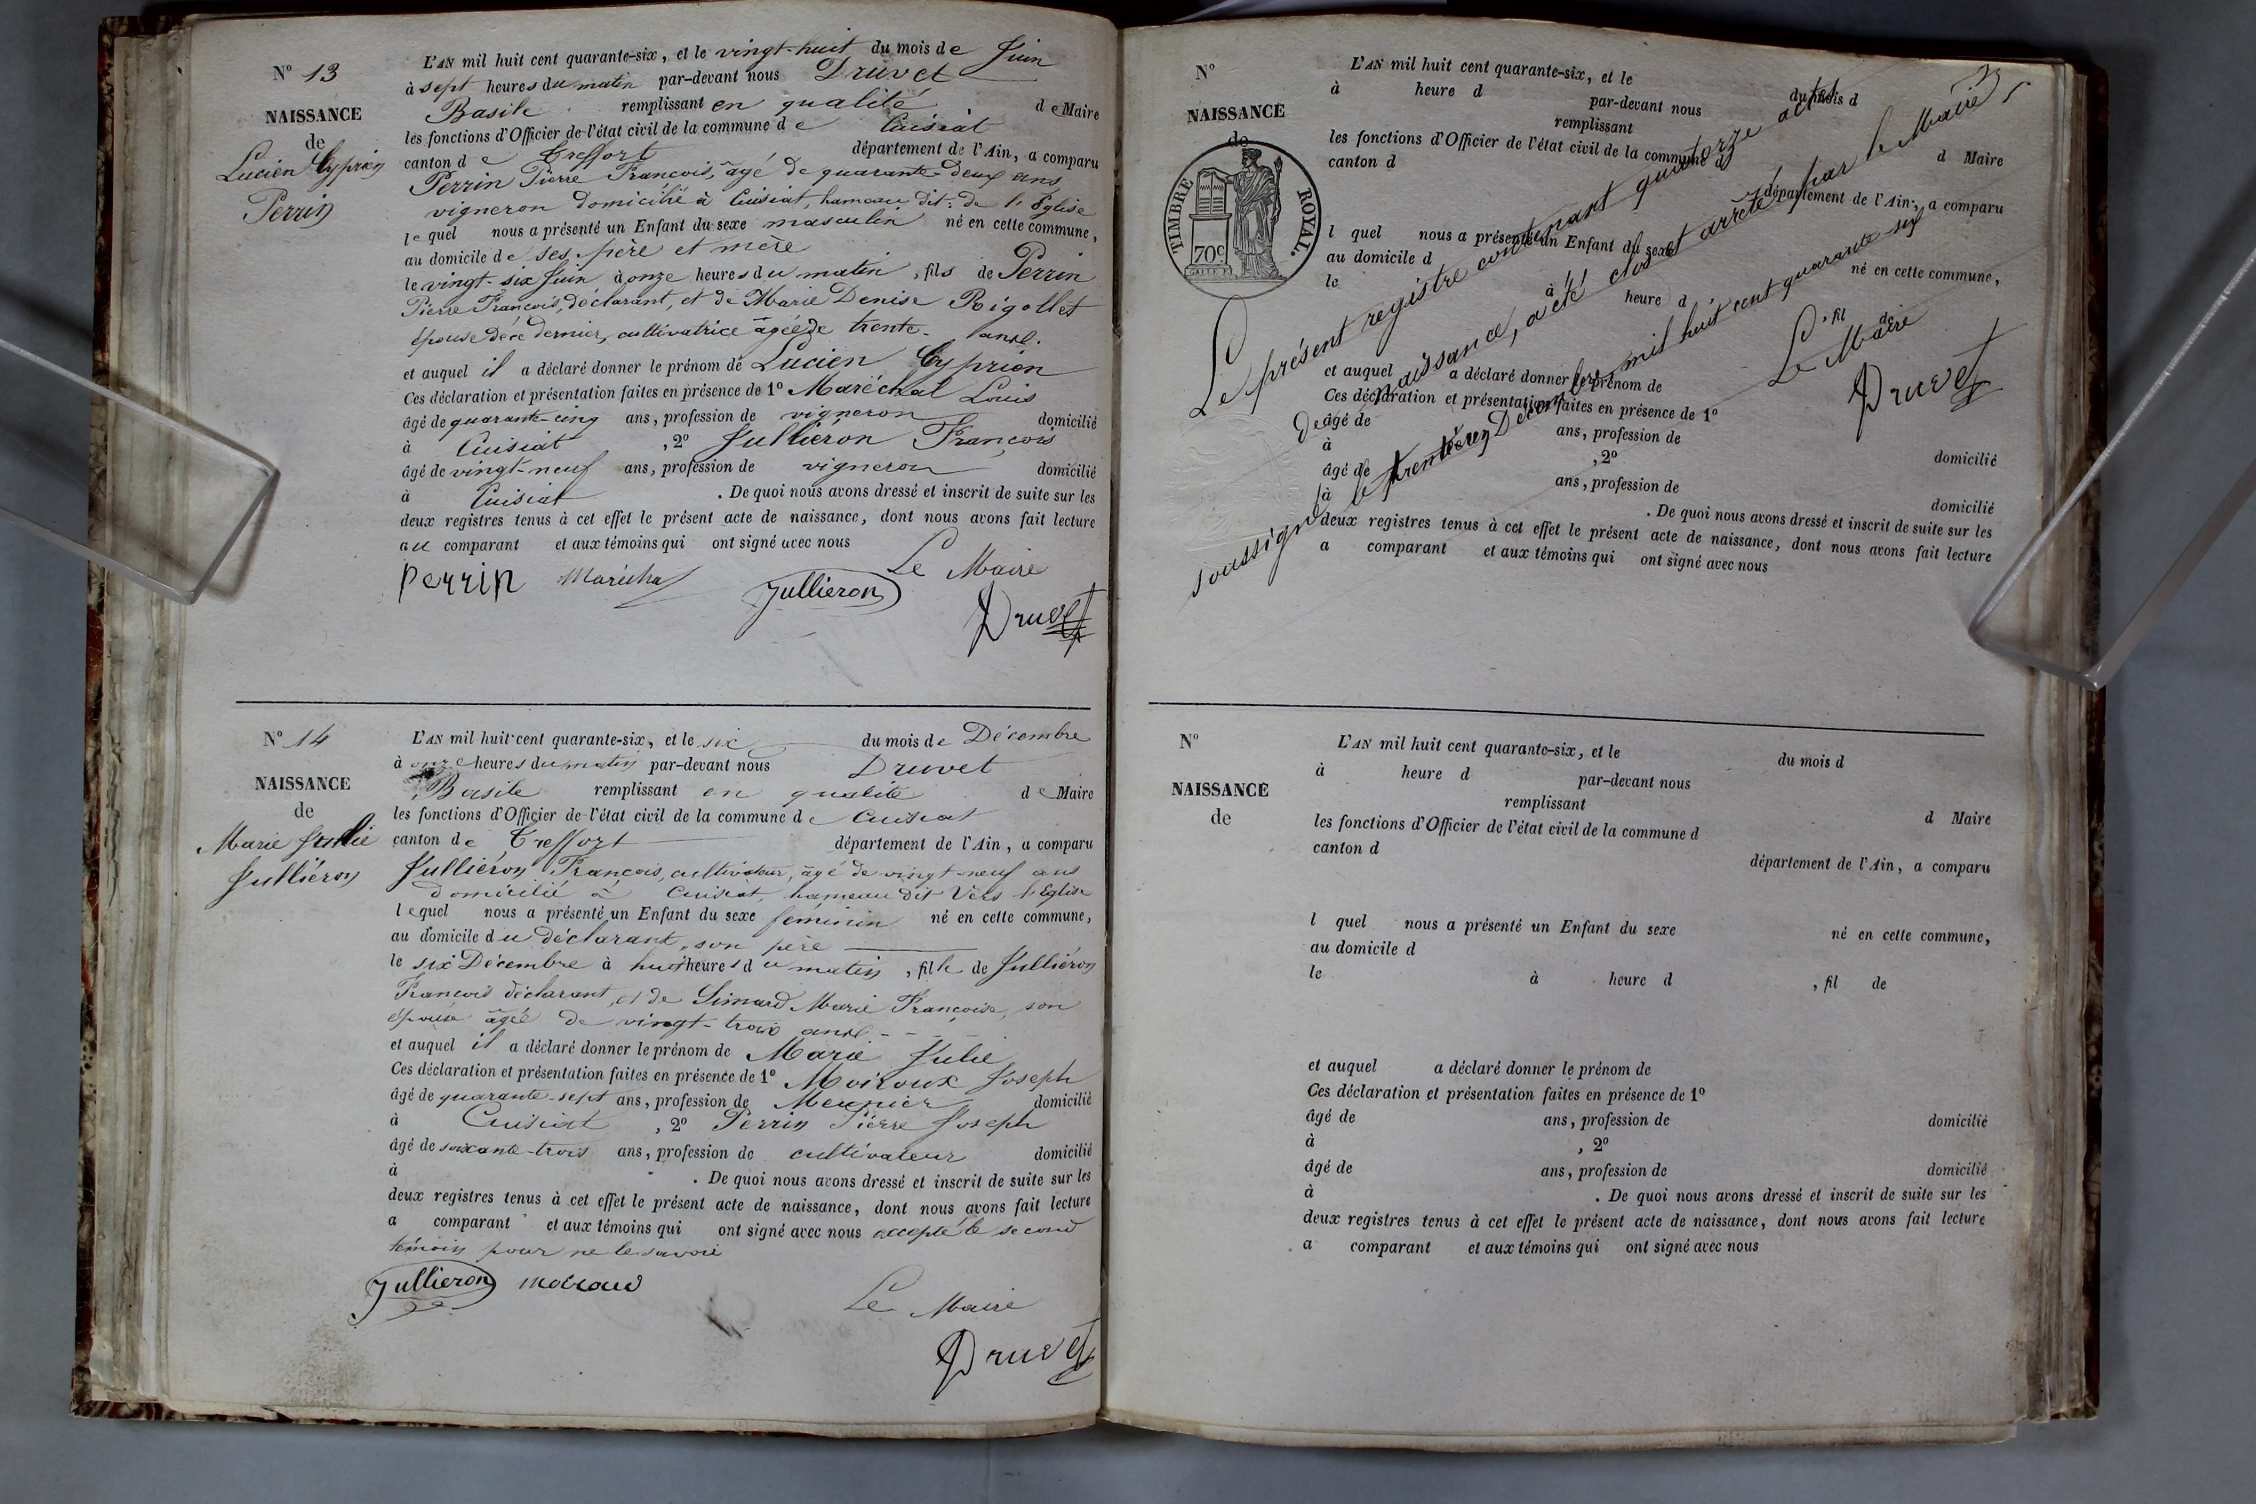 N° 13
NAISSANCE
de
Lucien Cyprien
Perrin
L'AN mil huit cent quarante-six, et le vingt-huit du mois de Juin
à sept heures du matin par-devant nous Druvet
Basile remplissant en qualité de Maire
les fonctions d'Officier de l'état civil de la commune de Cuisiat
canton de Treffort département de l'Ain, a comparu
Perrin Pierre François, âgé de quarante-deux ans
vigneron domicilié à Cuisiat, hameau dit: de l'Eglise
lequel nous a présenté un Enfant du sexe masculin né en cette commune,
au domicile de ses père et mère
le vingt-six Juin à onze heures du matin, fils de Perrin
Pierre François, déclarant, et de Marie Denise Rigollet
épouse de ce dernier, cultivatrice âgée de trente- ans.
et auquel il a déclaré donner le prénom de Lucien Cyprien
Ces déclaration et présentation faites en présence de 1° Maréchal Louis
âgé de quarante-cinq ans, profession de vigneron domicilié
à Cuisiat, 2° Julliéron François
âgé de vingt-neuf ans, profession de vigneron domicilié
à Cuisiat. De quoi nous avons dressé et inscrit de suite sur les
deux registres tenus à cet effet le présent acte de naissance, dont nous avons fait lecture
au comparant et aux témoins qui ont signé avec nous
Le Maire
Perrin Maréchal Jullieron
Druvet
N° 14
NAISSANCE
de
Marie Julie
Julliéron
L'AN mil huit cent quarante-six, et le six du mois de Décembre
à onze heures du matin par-devant nous Druvet
Basile remplissant en qualité de Maire
les fonctions d'Officier de l'état civil de la commune de Cuisiat
canton de Treffort département de l'Ain, a comparu
Julliéron François, cultivateur, âgé de vingt-neuf ans
domicilié à Cuisiat, hameau dit Vers l'Eglise
lequel nous a présenté un Enfant du sexe féminin né en cette commune,
au domicile du déclarant, son père
le six Décembre à huit heures du matin, fille de Julliéron
François déclarant, et de Simard Marie Françoise, son
épouse âgée de vingt-trois ans
et auquel il a déclaré donner le prénom de Marie Julie
Ces déclaration et présentation faites en présence de 1° Moiroux Joseph
âgé de quarante-sept ans, profession de Meunier domicilié
à Cuisiat, 2° Perrin Pierre Joseph
âgé de soixante-trois ans, profession de cultivateur domicilié
à . De quoi nous avons dressé et inscrit de suite sur les
deux registres tenus à cet effet le présent acte de naissance, dont nous avons fait lecture
a comparant et aux témoins qui ont signé avec nous excepté le second
témoin pour ne le savoir
Jullieron
Le Maire
Druvet
N°
NAISSANCE
de
TIMBRE ROYAL.
70c
L'AN mil huit cent quarante-six, et le du mois d
à heure d par-devant nous
remplissant d Maire
les fonctions d'Officier de l'état civil de la commune d
canton d département de l'Ain, a comparu
l quel nous a présenté un Enfant du sexe né en cette commune,
au domicile d
le à heure d , fil de
et auquel a déclaré donner le prénom de
Ces déclaration et présentation faites en présence de 1°
âgé de ans, profession de domicilié
à , 2°
âgé de ans, profession de domicilié
à . De quoi nous avons dressé et inscrit de suite sur les
deux registres tenus à cet effet le présent acte de naissance, dont nous avons fait lecture
a comparant et aux témoins qui ont signé avec nous
Le présent registre contenant quatorze actes
De naissance, a été clos et arrêté par le Maire
soussigné le trente-un Décembre mil huit cent quarante-six
Le Maire
Druvet
N°
NAISSANCE
de
L'AN mil huit cent quarante-six, et le du mois d
à heure d par-devant nous
remplissant d Maire
les fonctions d'Officier de l'état civil de la commune d
canton d département de l'Ain, a comparu
l quel nous a présenté un Enfant du sexe né en cette commune,
au domicile d
le à heure d , fil de
et auquel a déclaré donner le prénom de
Ces déclaration et présentation faites en présence de 1°
âgé de ans, profession de domicilié
à , 2°
âgé de ans, profession de domicilié
à . De quoi nous avons dressé et inscrit de suite sur les
deux registres tenus à cet effet le présent acte de naissance, dont nous avons fait lecture
a comparant et aux témoins qui ont signé avec nous